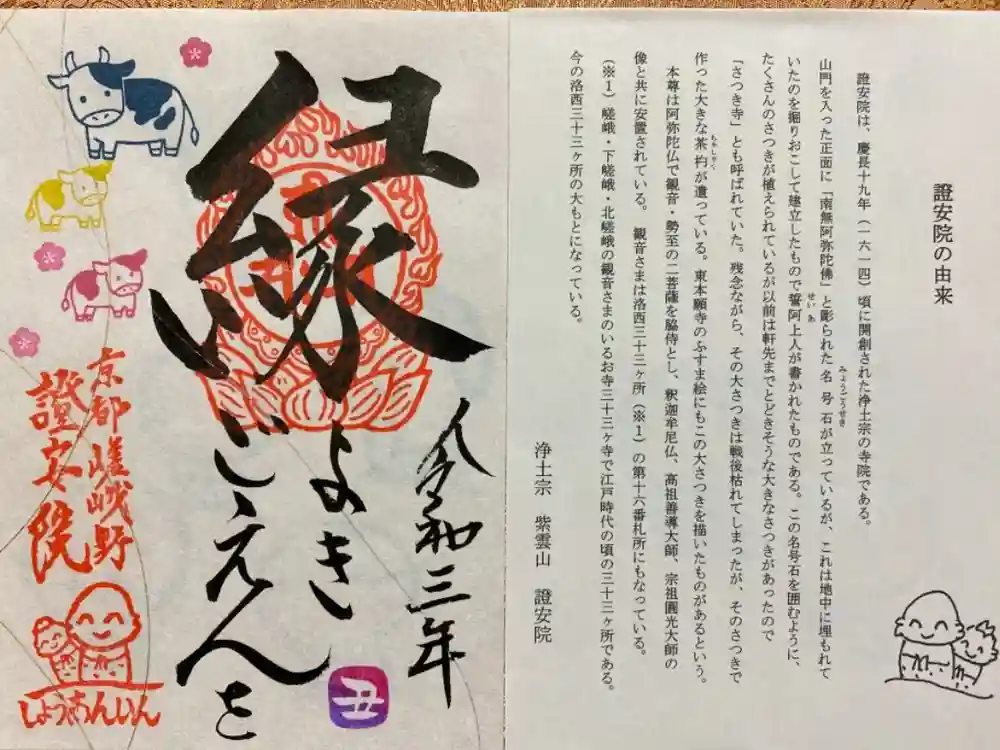 證安院の由来
證安院は、慶長十九年（一六一四）頃に開創された浄土宗の寺院である。
山門を入った正面に「南無阿弥陀佛」と彫られた名号石が立っているが、これは地中に埋もれて
みょうごうせき
いたのを掘りおこして建立したもので誓阿上人が書かれたものである。この名号石を囲むように、
せいあ
たくさんのさつきが植えられているが以前は軒先までとどきそうな大きなさつきがあったので
「さつき寺」とも呼ばれていた。残念ながら、その大さつきは戦後枯れてしまったが、そのさつきで
作った大きな茶杓が遺っている。東本願寺のふすま絵にもこの大さつきを描いたものがあるという。
ちゃしゃく
本尊は阿弥陀仏で観音・勢至の二菩薩を脇侍とし、釈迦牟尼仏、高祖善導大師、宗祖圓光大師の
像と共に安置されている。観音さまは洛西三十三ヶ所（※１）の第十六番札所にもなっている。
（※１）嵯峨・下嵯峨・北嵯峨の観音さまのいるお寺三十三ヶ寺で江戸時代の頃の三十三ヶ所である。
今の洛西三十三ヶ所の大もとになっている。
浄土宗 紫雲山 證安院
令和三年
縁
よき
ごえんを
丑
京都嵯峨野
證安院
しょうあんいん